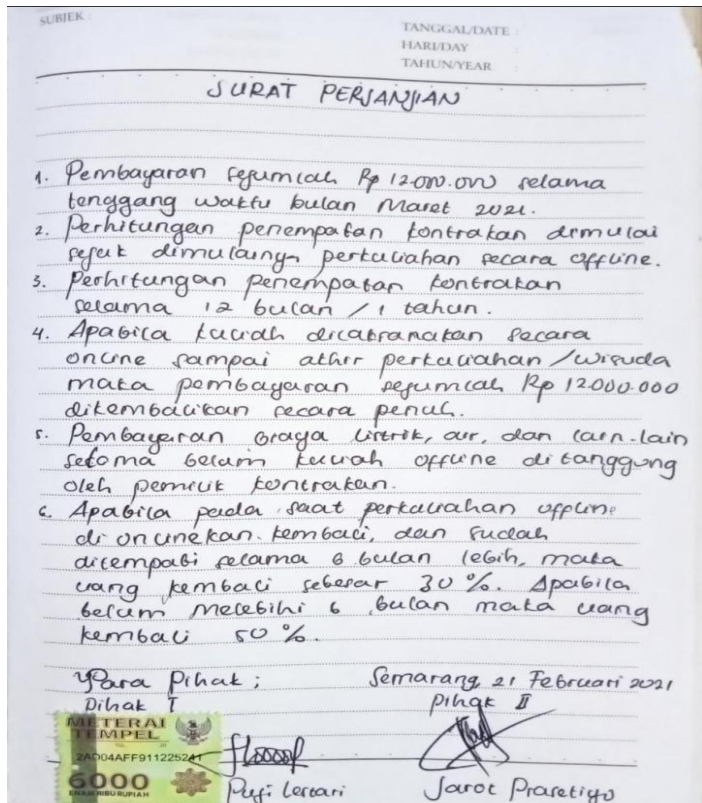 SUBJEK :
TANGGAL/DATE :
HARI/DAY :
TAHUN/YEAR :
SURAT PERJANJIAN
1. Pembayaran sejumlah Rp 12.000.000 selama
tenggang waktu bulan Maret 2021.
2. Perhitungan penempatan kontrakan dimulai
sejak dimulainya perkuliahan secara offline.
3. Perhitungan penempatan kontrakan
selama 12 bulan / 1 tahun.
4. Apabila kuliah dilaksanakan secara
online sampai akhir perkuliahan / wisuda
maka pembayaran sejumlah Rp 12.000.000
dikembalikan secara penuh.
5. Pembayaran biaya listrik, air, dan lain-lain
selama belum kuliah offline ditanggung
oleh pemilik kontrakan.
6. Apabila pada saat perkuliahan offline
di onlinekan kembali, dan sudah
ditempati selama 6 bulan lebih, maka
uang kembali sebesar 30 %. Apabila
belum melebihi 6 bulan maka uang
kembali 50 %.
Para Pihak ;
Semarang, 21 Februari 2021
Pihak I
Pihak II
METERAI
TEMPEL
2AD04AFF911225241
6000
ENAM RIBU RUPIAH
Puji Lestari
Jarot Prasetiyo